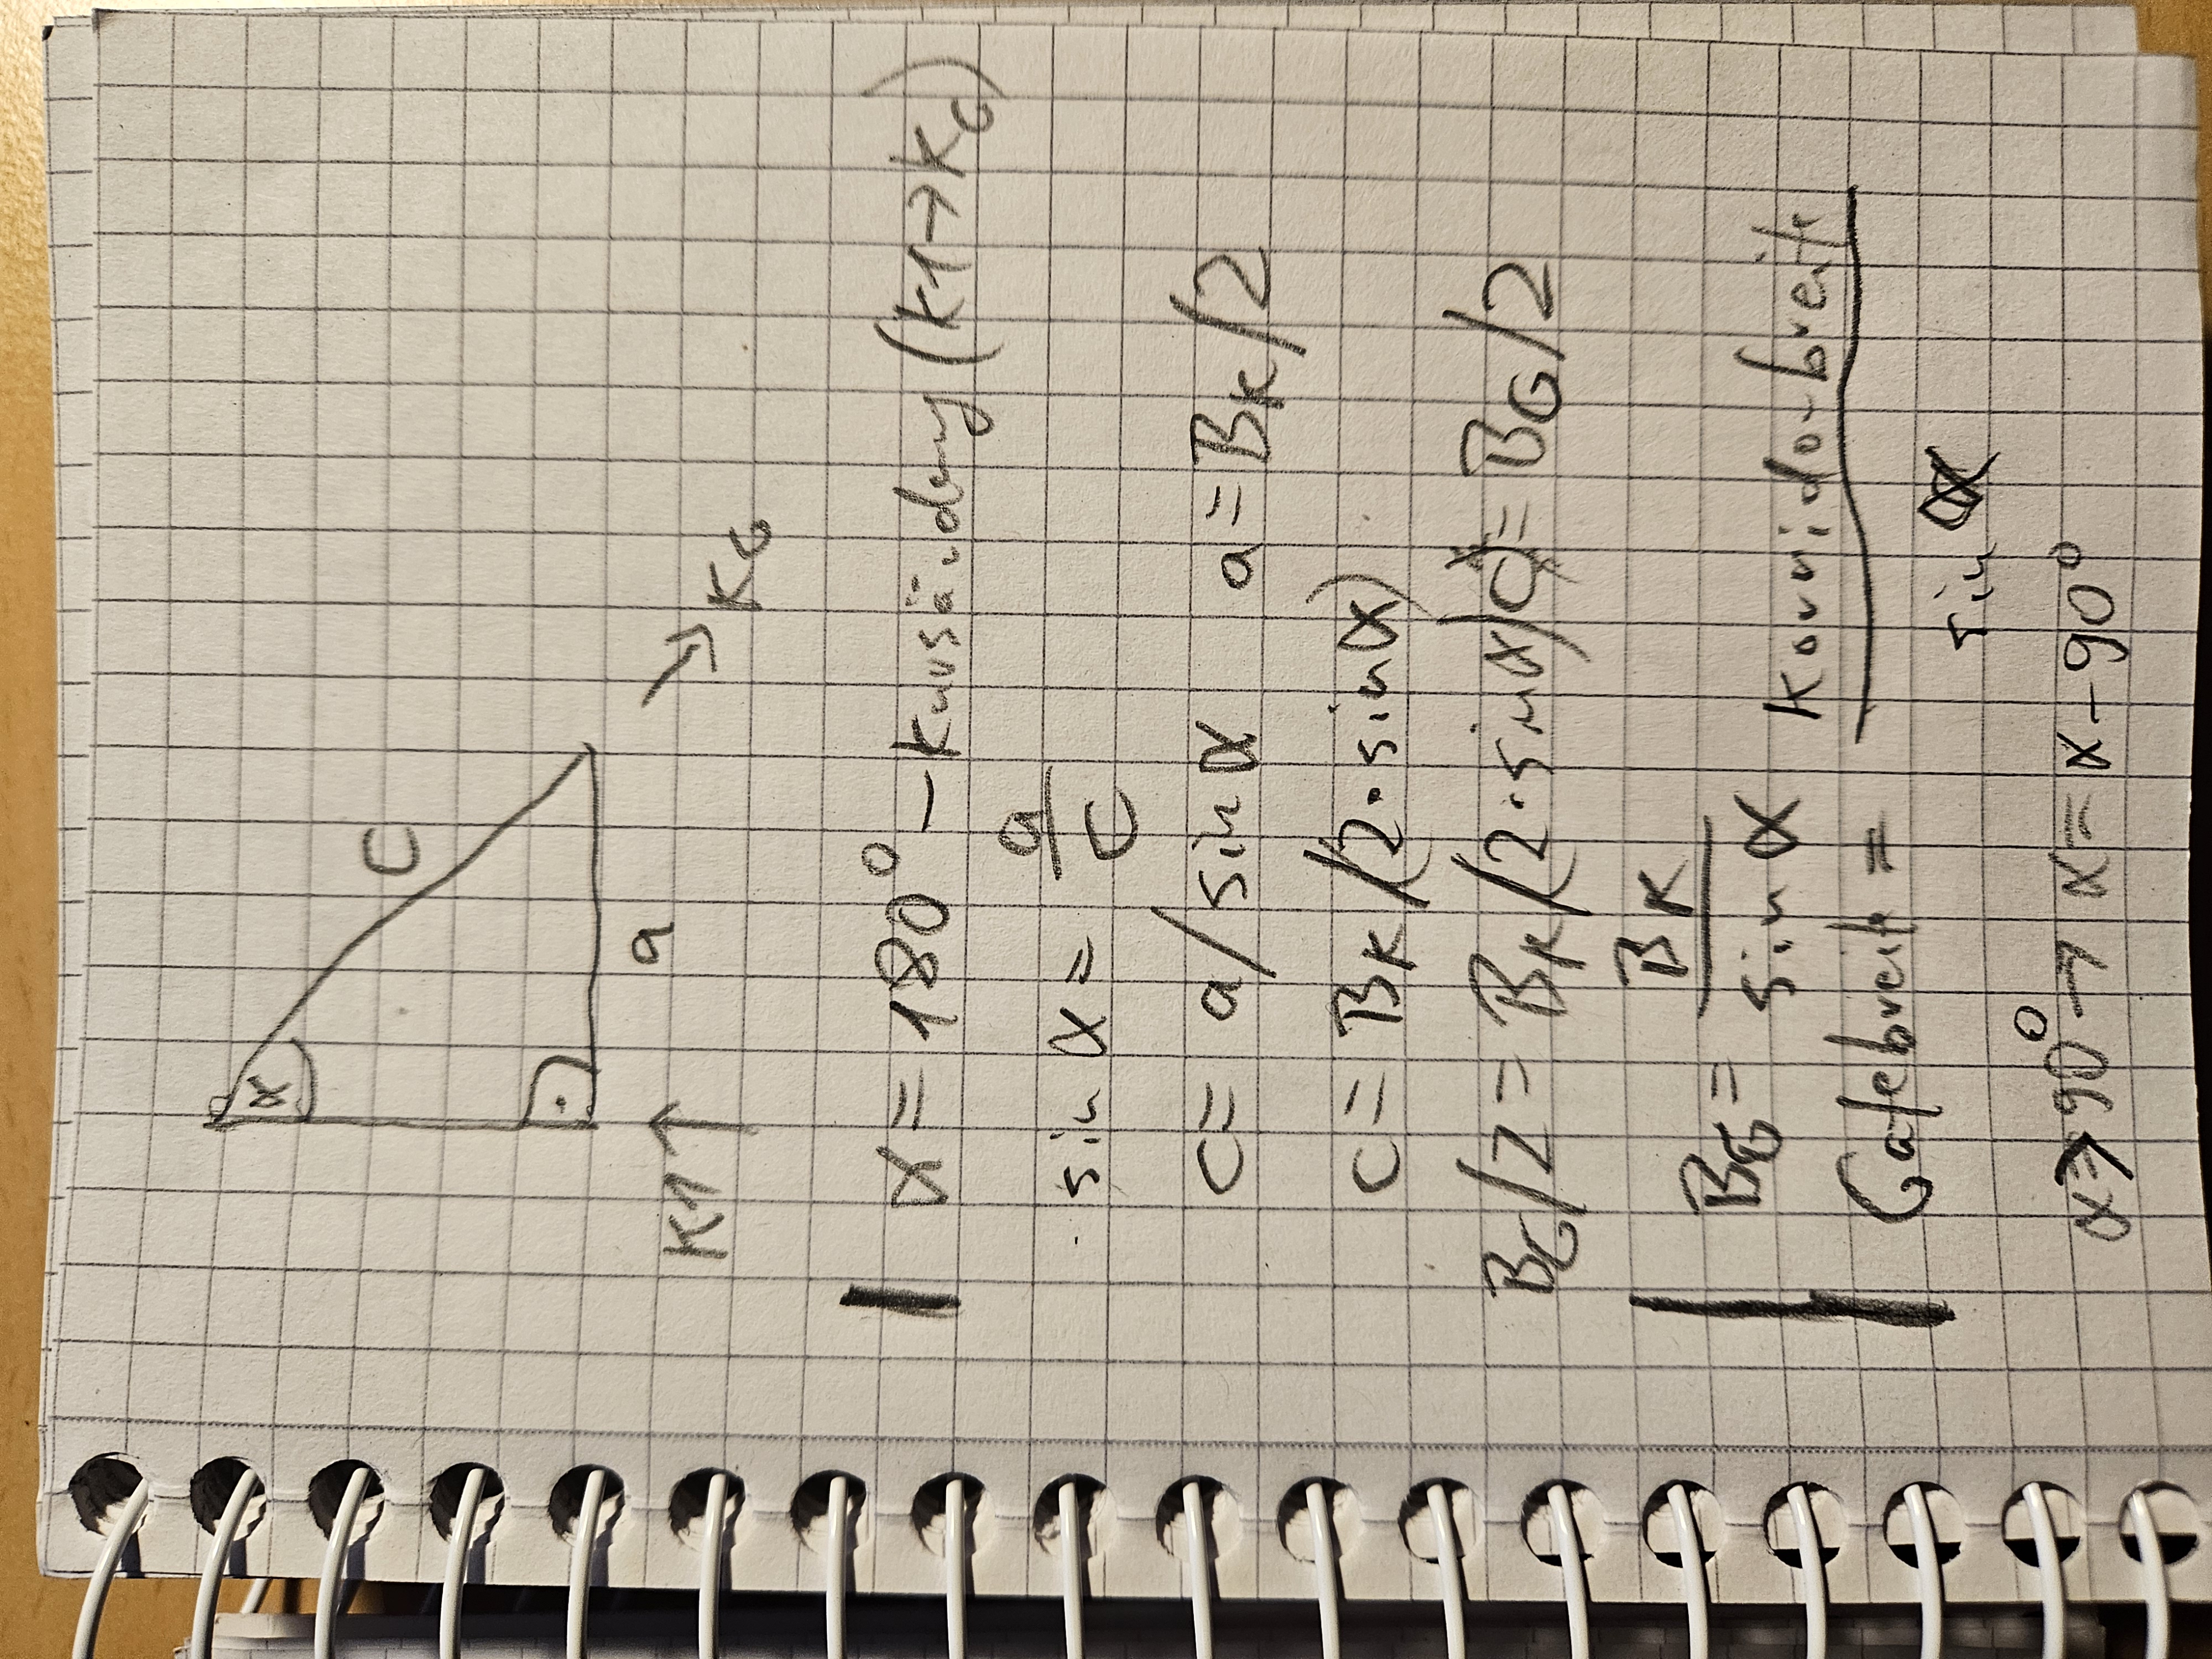 α
C
a
K1 ↑
↘ KG
α = 180° - Kursänderung (K1→KG)
sin α = a/c
c = a/sin α a = BK/2
c = BK/(2·sin α)
BG/2 = BK/(2·sin α) c = BG/2
BG = BK/sin α
Gatebreite = Korridorbreite/sin α
α > 90° → α = α - 90°